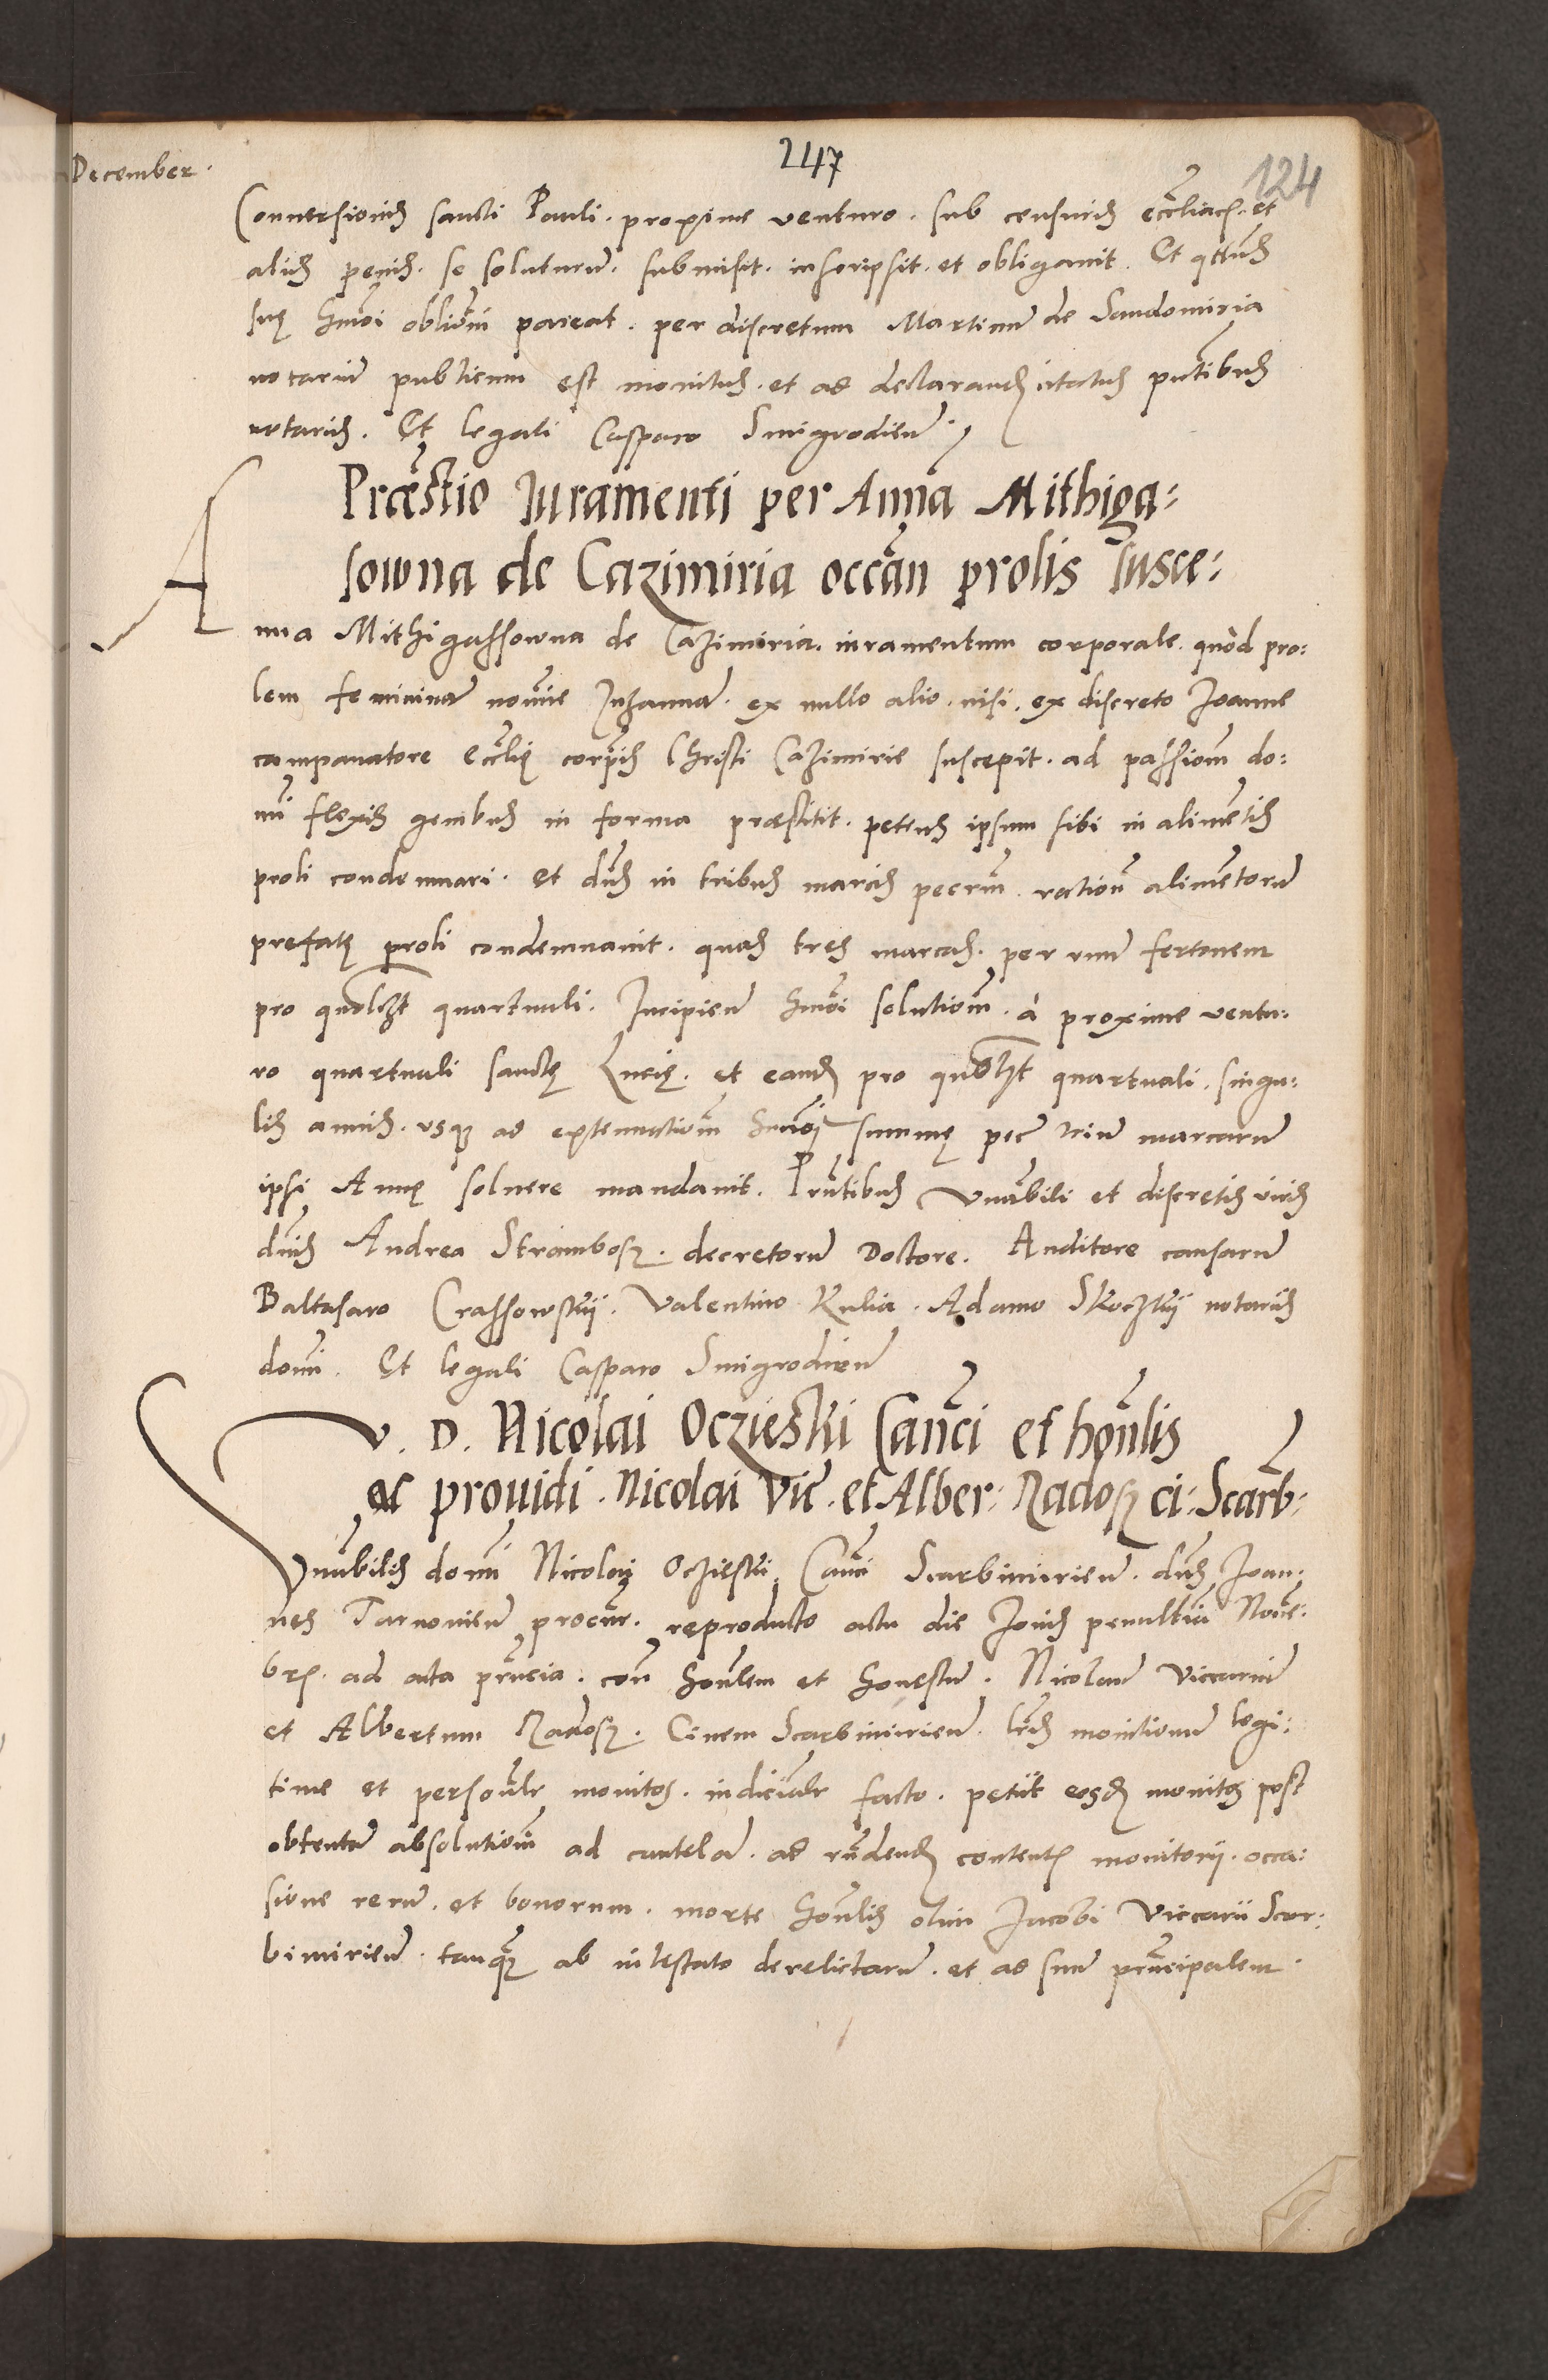 247
124
December.
Conversionis sancti Pauli. proxime venturo. sub censuris eccliacis. et
aliis penis. se soluturum. submisit. inscripsit. et obligavit. Et
suę hmoi oblioni pareat. per discretum Martinum de Sandomiria
notarium publicum est monitus. et ad declarandum citatus pntibus
notariis. Et legali Casparo Smigrodien.
Præstio Juramenti per Annã Mithiga-
sowna de Cazimiria occãn prolis susce:
Anna Mithigassowna de Cazimiria. iuramentum corporale. quod pro:
lem femininam nomine Zuzannam. ex nullo alio. nisi. ex discreto Joanne
campanatore Ecclię corpis Christi Cazimirie suscepit. ad passionem do:
mi flexis genibus in forma præstitit. petens ipsum sibi in alimentis
proli condemnari. Et dns in tribus marcis pecrm. rationem alimentorum
prefatę proli condemnavit. quas tres marcas. per unum fertonem
pro quolzt quartuali. Incipien hmoi solutionem. à proxime ventu:
ro quartuali sanctę Lucię. et eandem pro quolzt quartuali. singu:
lis annis. usque ad extenuationem hmoi summę pec trium marcarum
ipsi Annę solvere mandavit. Pntibus Vnabili et discretis viris
dnis Andrea Strambosz. decretorum Doctore. Auditore causarum
Baltasaro Crassowskij. Valentino Kulia. Adamo Skoczkij notariis
domi. Et legali Casparo Smigrodien
V. D. Nicolai Oczieski Canci et honlis
ac providi. Nicolai Vic. et Alber: Radosz ci: Scarb:
Vnabilis domi Nicolaj Oczieskii Canci Scarbimirien. dns Joan:
nes Tarnovien procur. reproducto actu die Jovis penultima Novem:
bris. ad acta pntia. con honlem et honestum. Nicolaum Viccarium
et Albertum Radosz. Civem Scarbimirien. lris monitionum legi:
time et personalr monitos. iudicialr facto. petiit eosdem monitos post
obtentam absolutionem ad cautelam. ad rndendum contentis monitorij. occa:
sione rerum. et bonorum. morte honlis olim Jacobi Viccarii Scar:
bimirien. tanquam ab intestato derelictarum. et ad suum principalem.